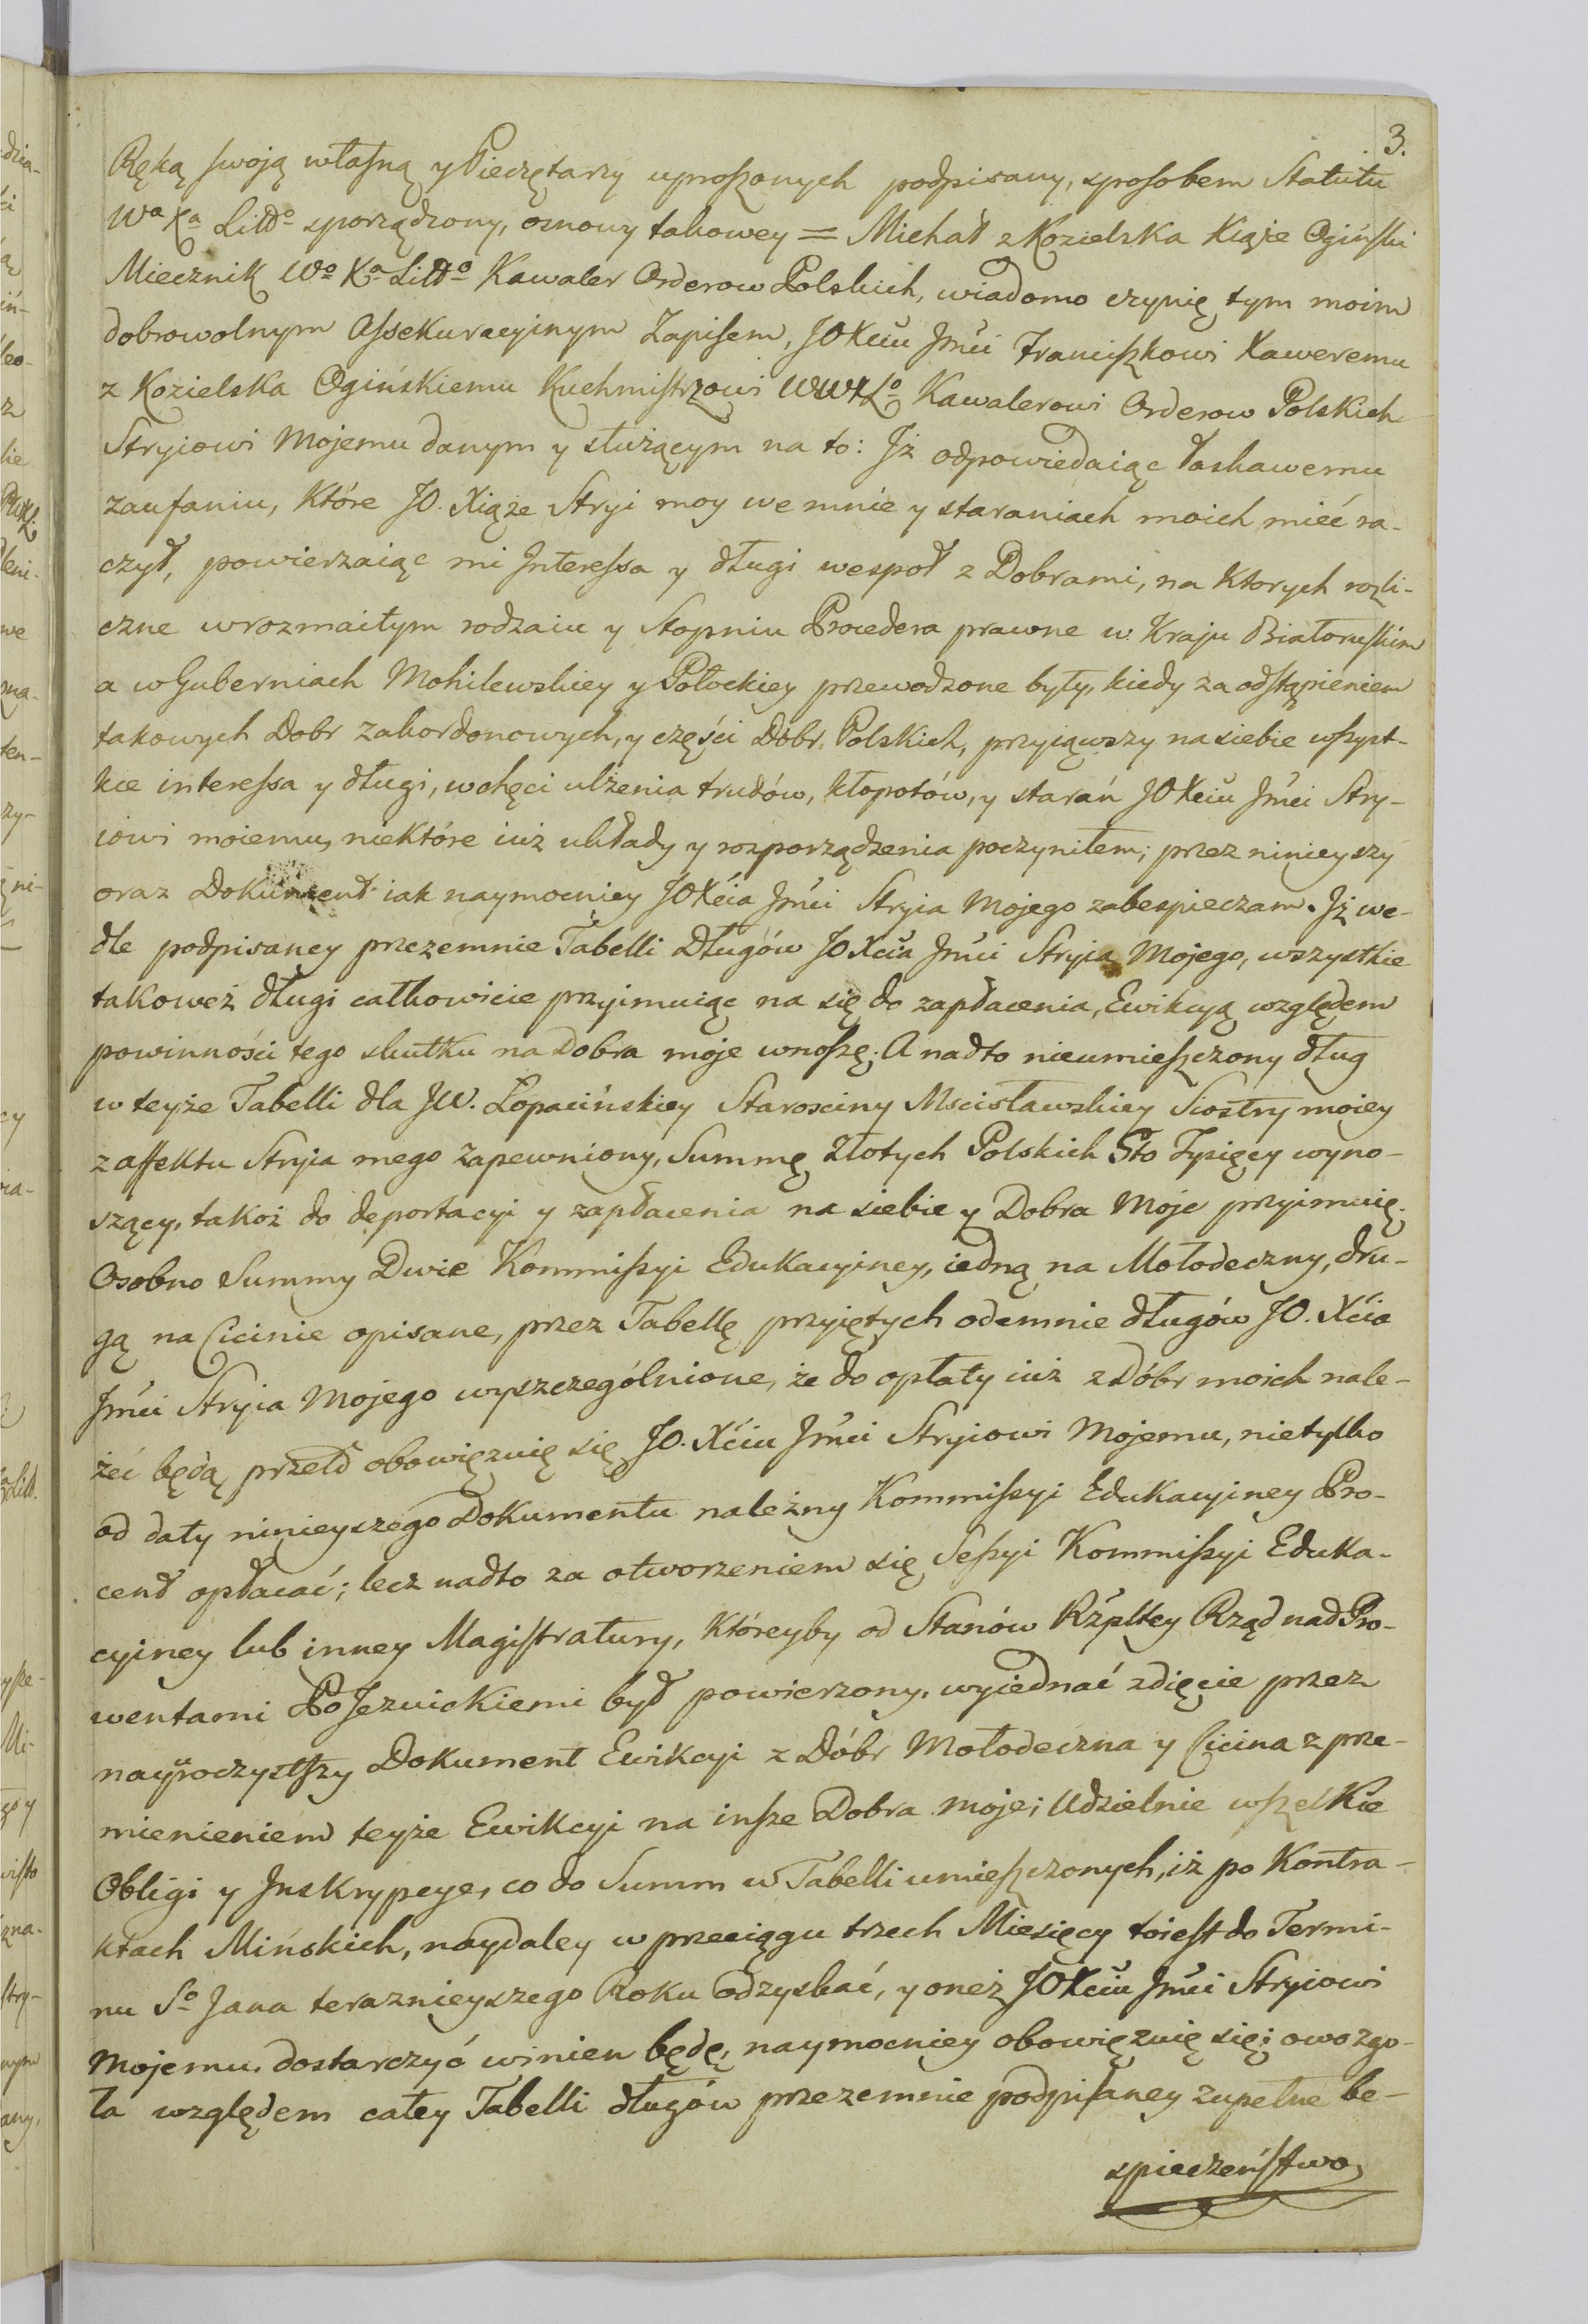 3.
Ręką swoią własną y Pieczętarzy uproszonych podpisany, sposobem Statutu
Wa Xa Littº sporządzony, osnowy takowey = Michał z Kozielska Xiąże Ogiński
Miecznik Wº Xa Littº Kawaler Orderow Polskich, wiadomo czynię tym moim
dobrowolnym Assekuracyinym Zapisem, JO Xciu Jmci Franciszkowi Xaweremu
z Kozielska Ogińskiemu Kuchmistrzowi WWXLº Kawalerowi Orderow Polskich
Stryiowi Mojemu danym y służącym na to: Jż odpowiedaiąc łaskawemu
zaufaniu, które JO. Xiąże Stryi moy we mnie y staraniach moich mieć ra-
czył, powierzaiąc mi Interessa y długi wespoł z Dobrami, na ktorych rozli-
czne w rozmaitym rodzaiu y Stopniu Procedera prawne w Kraju Białoruskim
a w Guberniach Mohilewskiey y Połockiey przewodzone były, kiedy za odstąpieniem
takowych Dobr zakordonowych, y części Dóbr Polskich, przyiąwszy na siebie wszyst-
kie interessa y długi, w chęci ulżenia trudów, kłopotów, y starań JO Xciu Jmci Stry-
iowi moiemu, niektóre iuż układy y rozporządzenia poczyniłem; przez ninieyszy
oraz Dokument iak naymocniey JO Xcia Jmci Stryia Mojego zabespieczam. Jż we-
dle podpisaney przezemnie Tabelli Długów JO Xcia Jmci Stryia Mojego, wszystkie
takoweż długi całkowicie przyimuiąc na się do zapłacenia, Ewikcyą względem
powinności tego skutku na Dobra moje wnoszę; A nadto nieumieszczony dług
w teyże Tabelli dla JW. Łopacińskiey Starosciny Mscisławskiey Siostry moiey
z affektu Stryia mego zapewniony, Summę Złotych Polskich Sto Tysięcy wyno-
szący, takoż do deportacyi y zapłacenia na siebie y Dobra Moje przyimuię.
Osobno Summy Dwie Kommissyi Edukacyiney, iedną na Mołodeczny, dru-
gą na Cicinie opisane, przez Tabellę przyiętych odemnie długów JO. Xcia
Jmci Stryia Mojego wyszczególnione, że do opłaty iuż z Dóbr moich nale-
żeć będą, przeto obowięzuię się JO. Xciu Jmci Stryiowi Mojemu, nietylko
od daty ninieyszego Dokumentu należny Kommissyi Edukacyiney Pro-
cent opłacać; lecz nadto za otworzeniem się Sessyi Kommissyi Eduka-
cyiney lub inney Magistratury, któreyby od Stanów Rzpltey Rząd nad Pro-
wentami Po Jezuickiemi był powierzony, wyiednać zdięcie przez
nayuroczystszy Dokument Ewikcyi z Dóbr Mołodeczna y Cicina z prze-
mienieniem teyże Ewikcyi na insze Dobra moje; Udzielnie wszelkie
Obligi y Inskrypcye, co do Summ w Tabelli umieszczonych, iż po Kontra-
ktach Mińskich, naydaley w przeciągu trzech Miesięcy toiest do Termi-
nu Sº Jana teraznieyszego Roku odzyskać, y oneż JO Xciu Jmci Stryiowi
Mojemu, dostarczyć winien będę, naymocniey obowięzuię się; owozgo-
ła względem całey Tabelli długów przezemnie podpisaney zupełne be-
spieczeństwo